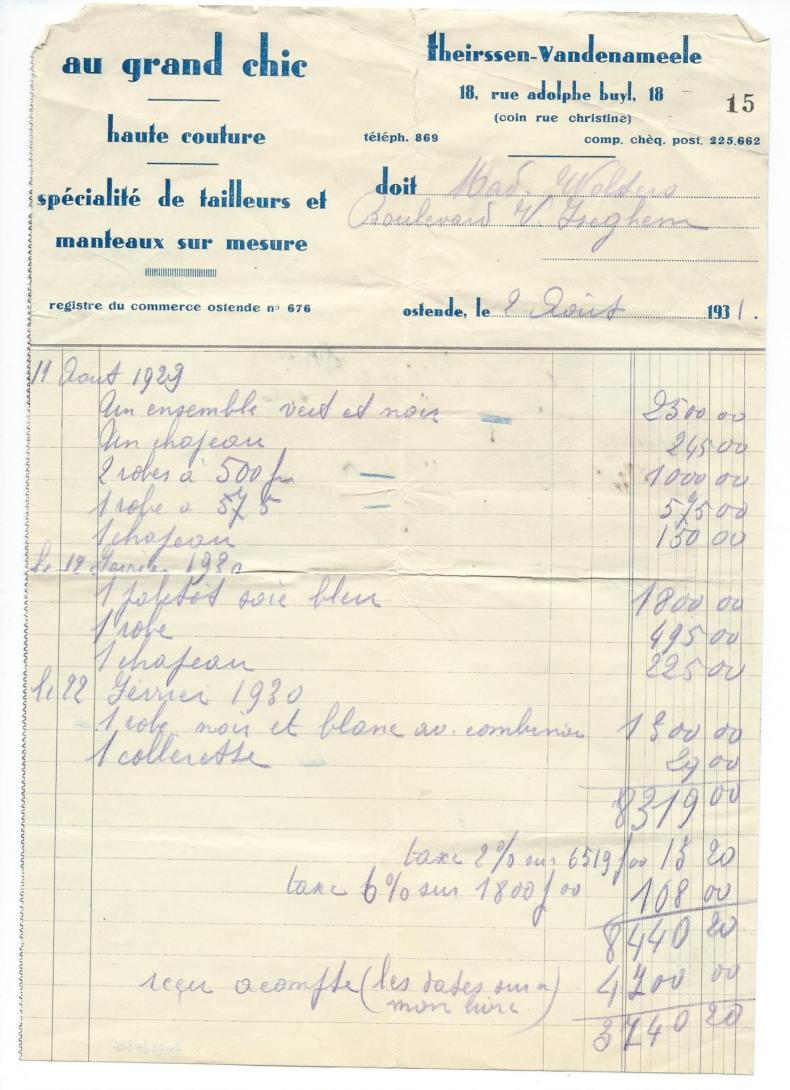 au grand chic
haute couture
spécialité de tailleurs et
manteaux sur mesure
registre du commerce ostende nº 676
theirssen-Vandenameele
18, rue adolphe buyl, 18
15
(coin rue christine)
téléph. 869 comp. chèq. post. 225.662
doit Mad. Wolters
Boulevard V. Iseghem
ostende, le 2 Août 1931.
11 Aout 1929
Un ensemble vert et noir 2500 00
Un chapeau 245 00
2 robes à 500 fr 1000 00
1 robe a 575 575 00
1 chapeau 150 00
Le 12 Février 1930
1 paletot soie bleu 1800 00
1 robe 495 00
1 chapeau 225 00
Le 22 Février 1930
1 robe noir et blanc av. 1300 00
1 collerette 29 00
8319 00
taxe 2% sur 6519 f 00 13 20
taxe 6% sur 1800 f 00 108 00
8440 20
reçu acompte (les dates sur 4700 00
mon livre)
3740 20